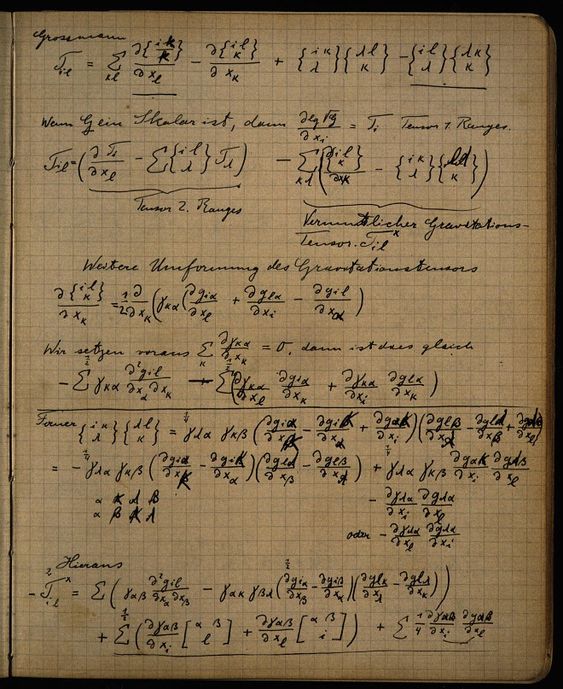 Grossmann
T_{il} = \sum_{κl} \frac{∂\{^{i κ}_{κ}\}}{∂x_l} - \frac{∂\{^{i l}_{κ}\}}{∂x_κ} + \{^{i κ}_{λ}\}\{^{λ l}_{κ}\} - \{^{i l}_{λ}\}\{^{λ κ}_{κ}\}
Wenn G ein Skalar ist, dann \frac{∂ lg √G}{∂x_i} = T_i Tensor 1. Ranges.
T_{il} = \left(\frac{∂T_i}{∂x_l} - \sum \{^{i l}_{λ}\} T_λ\right) - \sum_{κλ} \left(\frac{∂\{^{i l}_{κ}\}}{∂x_κ} - \{^{i κ}_{λ}\}\{^{l λ}_{κ}\}\right)
Tensor 2. Ranges
Vermutlicher Gravitations-
Tensor. T_{il}^x
Weitere Umformung des Gravitationstensors
\frac{∂\{^{i l}_{κ}\}}{∂x_κ} = \frac{1}{2} \frac{∂}{∂x_κ} \left(γ_{κα} \left(\frac{∂g_{iα}}{∂x_l} + \frac{∂g_{lα}}{∂x_i} - \frac{∂g_{il}}{∂x_α}\right)\right)
Wir setzen voraus \sum_κ \frac{∂γ_{κα}}{∂x_κ} = 0, dann ist dies gleich
- \frac{1}{2} \sum γ_{κα} \frac{∂^2 g_{il}}{∂x_α ∂x_κ} - \frac{1}{2} \sum \left(\frac{∂γ_{κα}}{∂x_l} \frac{∂g_{iα}}{∂x_κ} + \frac{∂γ_{κα}}{∂x_i} \frac{∂g_{lα}}{∂x_κ}\right)
Ferner \{^{i κ}_{λ}\}\{^{λ l}_{κ}\} = \frac{1}{4} γ_{λα} γ_{κβ} \left(\frac{∂g_{iα}}{∂x_κ} - \frac{∂g_{iκ}}{∂x_α} + \frac{∂g_{ακ}}{∂x_i}\right)\left(\frac{∂g_{lβ}}{∂x_λ} - \frac{∂g_{lλ}}{∂x_β} + \frac{∂g_{λβ}}{∂x_l}\right)
= - \frac{1}{4} γ_{λα} γ_{κβ} \left(\frac{∂g_{iα}}{∂x_κ} - \frac{∂g_{iκ}}{∂x_α}\right)\left(\frac{∂g_{lλ}}{∂x_β} - \frac{∂g_{lβ}}{∂x_λ}\right) + \frac{1}{4} γ_{λα} γ_{κβ} \frac{∂g_{ακ}}{∂x_i} \frac{∂g_{λβ}}{∂x_l}
α κ λ β
α β κ λ
- \frac{∂γ_{λα}}{∂x_i} \frac{∂g_{λα}}{∂x_l}
oder - \frac{∂γ_{λα}}{∂x_l} \frac{∂g_{λα}}{∂x_i}
Hieraus
- 2 T_{il}^x = \sum \left(γ_{αβ} \frac{∂^2 g_{il}}{∂x_α ∂x_β} - \frac{1}{2} γ_{ακ} γ_{βλ} \left(\frac{∂g_{iα}}{∂x_β} - \frac{∂g_{iβ}}{∂x_α}\right)\left(\frac{∂g_{lκ}}{∂x_λ} - \frac{∂g_{lλ}}{∂x_κ}\right)\right)
+ \frac{1}{2} \sum \left(\frac{∂γ_{αβ}}{∂x_i} [^{α β}_{l}] + \frac{∂γ_{αβ}}{∂x_l} [^{α β}_{i}]\right) + \sum \frac{1}{4} \frac{∂γ_{αβ}}{∂x_i} \frac{∂g_{αβ}}{∂x_l}